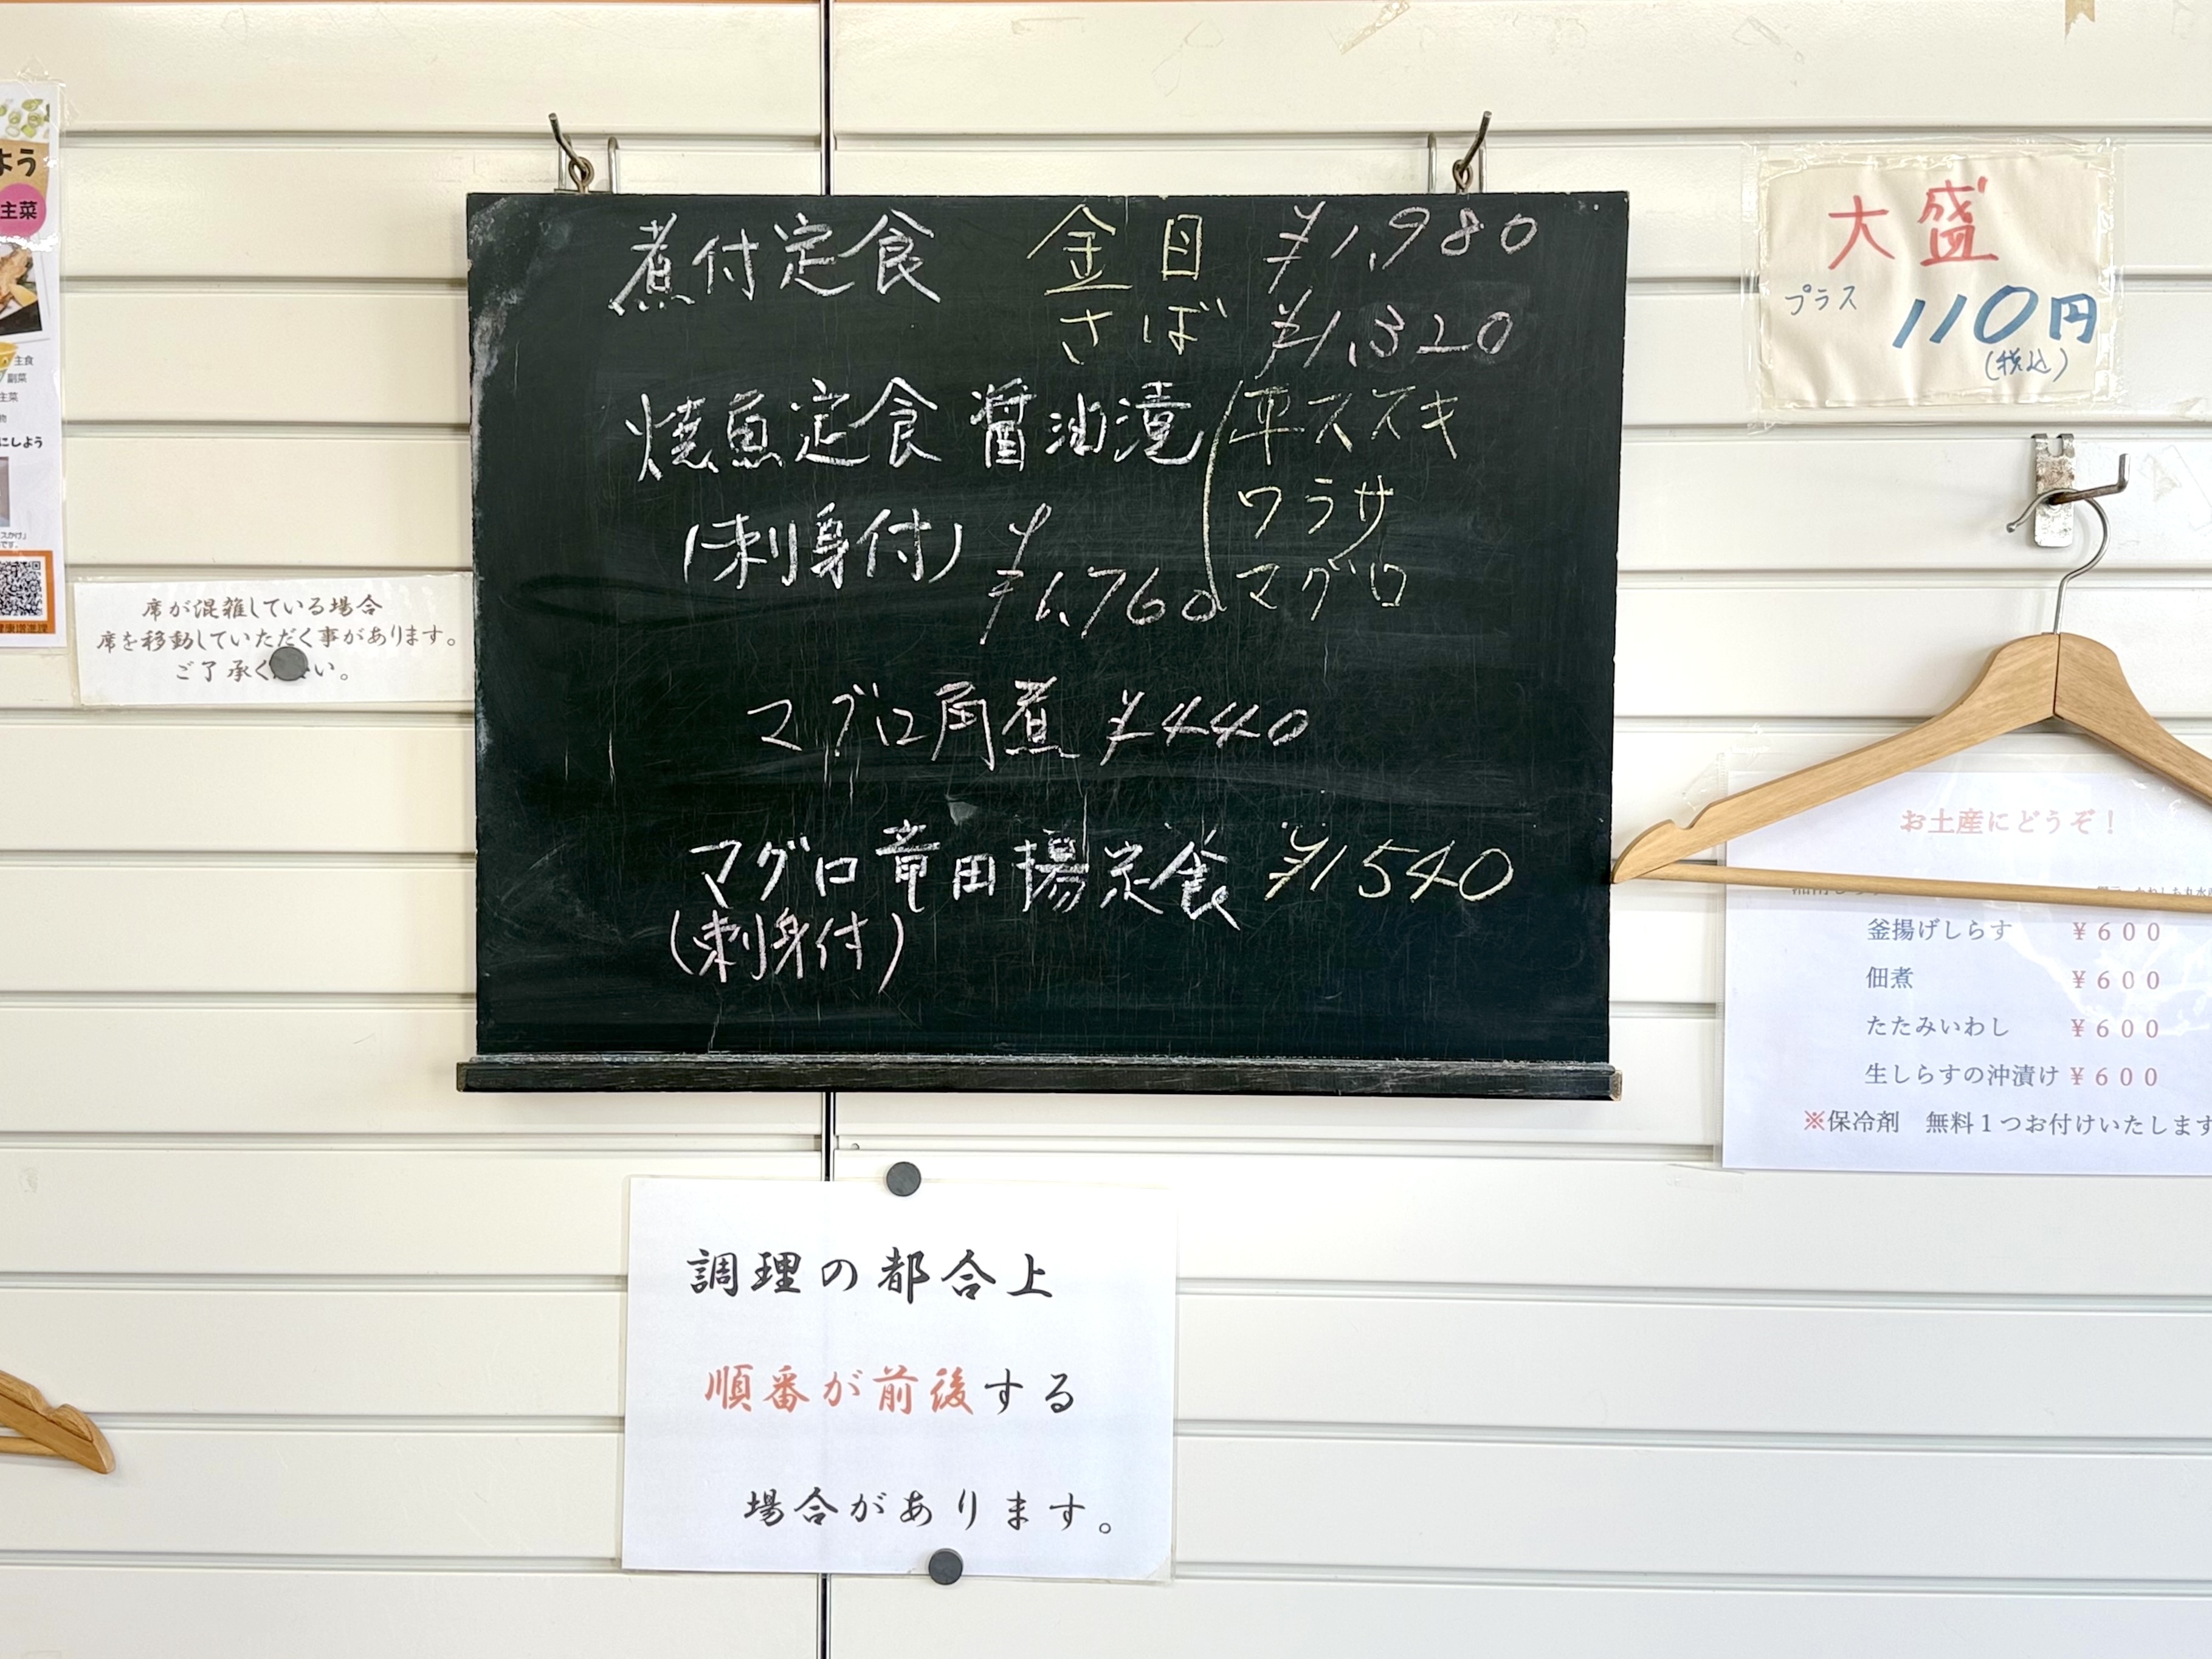 よう
主菜
主食
副菜
主菜
にしよう
席が混雑している場合
席を移動していただく事があります。
ご了承く い。
煮付定食 金目 ¥1,980
さば ¥1,320
焼魚定食 醤油漬 平スズキ
ワラサ
(刺身付) ¥1,760 マグロ
マグロ角煮 ¥440
マグロ竜田揚定食 ¥1540
(刺身付)
大盛
プラス 110円
(税込)
お土産にどうぞ！
釜揚げしらす ¥600
佃煮 ¥600
たたみいわし ¥600
生しらすの沖漬け ¥600
※保冷剤 無料1つお付けいたします
調理の都合上
順番が前後する
場合があります。